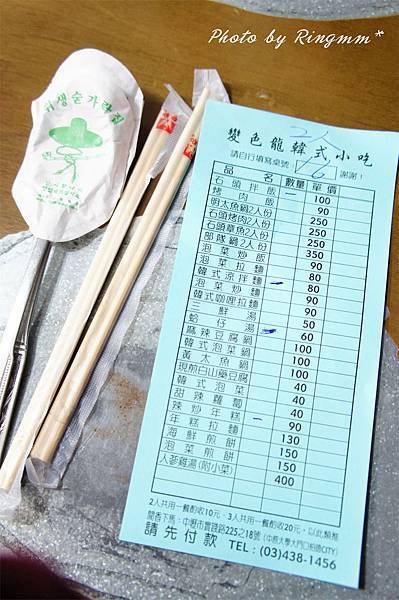 Photo by Ringmm*
위생숟가락집
變色龍韓式小吃
請自行填寫桌號 謝謝!
品名 數量 單價
石頭拌飯 一 100
烤肉飯 90
明太魚鍋2人份 250
石頭烤肉2人份 250
石頭章魚2人份 250
部隊鍋2人份 350
泡菜炒飯 90
泡菜拉麵 80
韓式涼拌麵 80
泡菜炒麵 90
韓式咖哩拉麵 90
三鮮湯 50
蛤仔湯 60
麻辣豆腐鍋 100
韓式泡菜鍋 100
黃太魚鍋 100
現煎白山藥豆腐 40
韓式泡菜 40
甜辣蘿蔔 40
辣炒年糕 90
年糕拉麵 130
海鮮煎餅 150
泡菜煎餅 150
人蔘雞湯(附小菜) 400
2人共用一鍋酌收10元、3人共用一鍋酌收20元，以此類推
聞香下馬：中壢市實踐路225之18號
請先付款 TEL：(03)438-1456